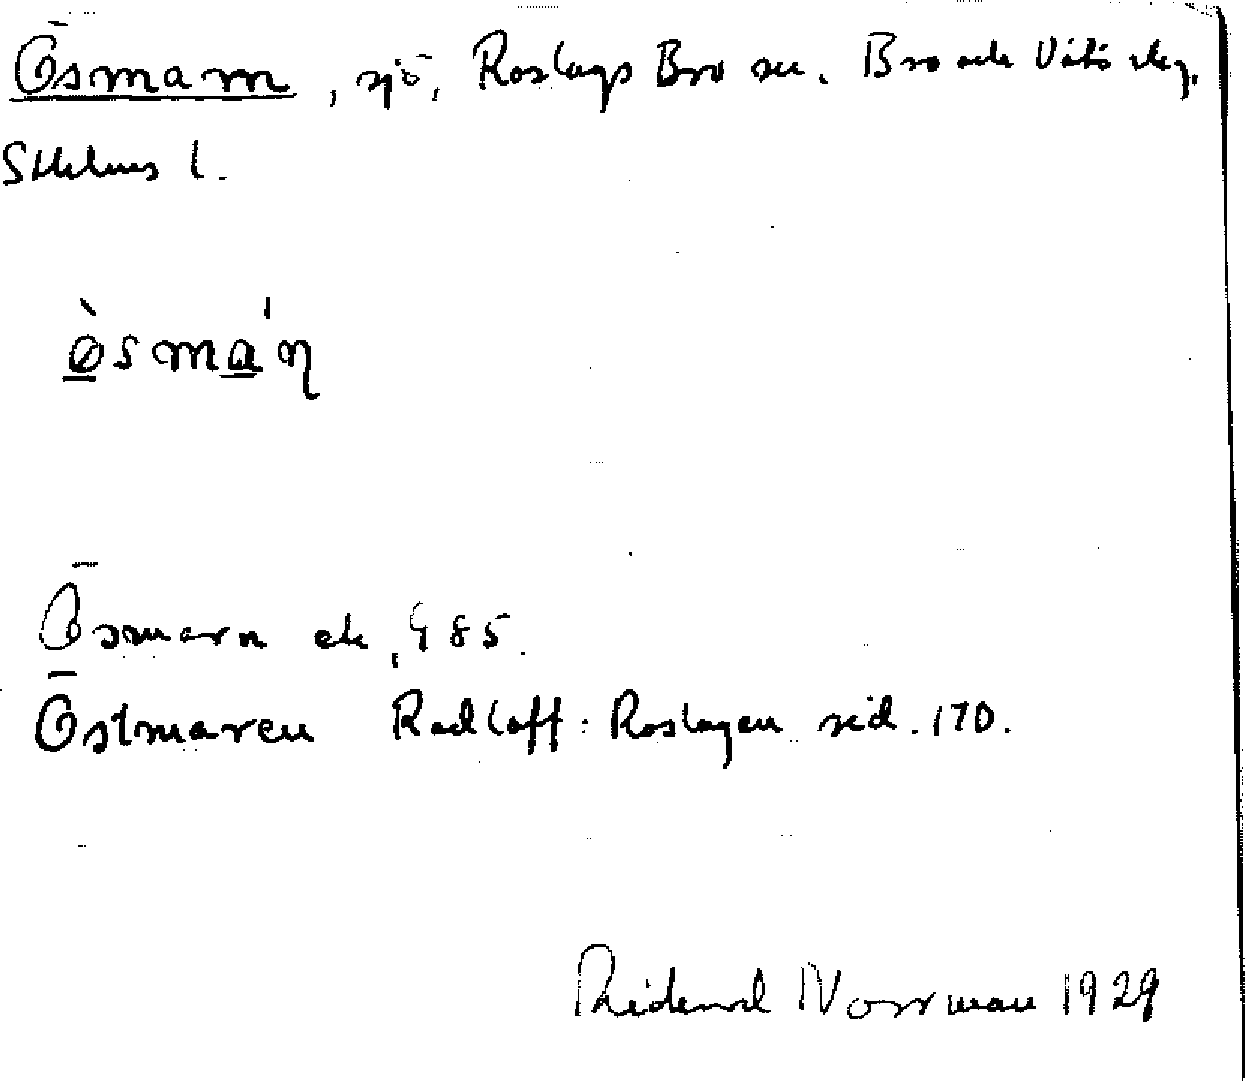 Ösmarn, sjö, Roslags Bro sn. Bro och Vätö skg,
Sthlms l.
ö̀smá̱ꞃ
Ösmarn ek. 985.
Östmaren Radloff: Roslagen sid. 170.
Norrman 1929